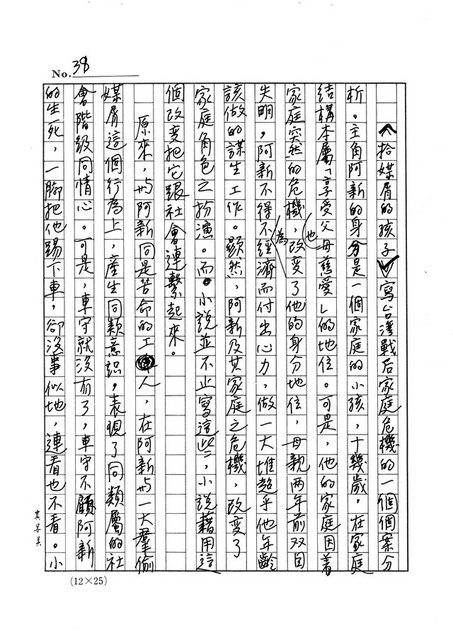 No. 38
〈拾媒屑的孩子〉寫台灣戰后家庭危機的一個個案分
析。主角阿新的身分是一個家庭的小孩，十幾歲。在家庭
結構本屬「享受父母慈愛」的地位。可是，他的家庭因着
家庭突然的危機，也改變了他的身分地位，母親兩年前双目
失明，阿新不得不為經濟而付出心力，做一大堆超乎他年齡
該做的謀生工作。顯然，阿新及其家庭之危機，改變了
家庭角色之扮演。而小說並不止寫這些，小說藉用這
個改變把它跟社會連繫起來。
原來，與阿新同是苦命的工人，在阿新與一大羣偷
媒屑這個行為上，產生同類意識，表現了同類屬的社
會階級同情心。可是，車守就沒有了，車守不顧阿新
的生死，一腳把他踢下車，卻沒事似地，連看也不看。小
(12×25)